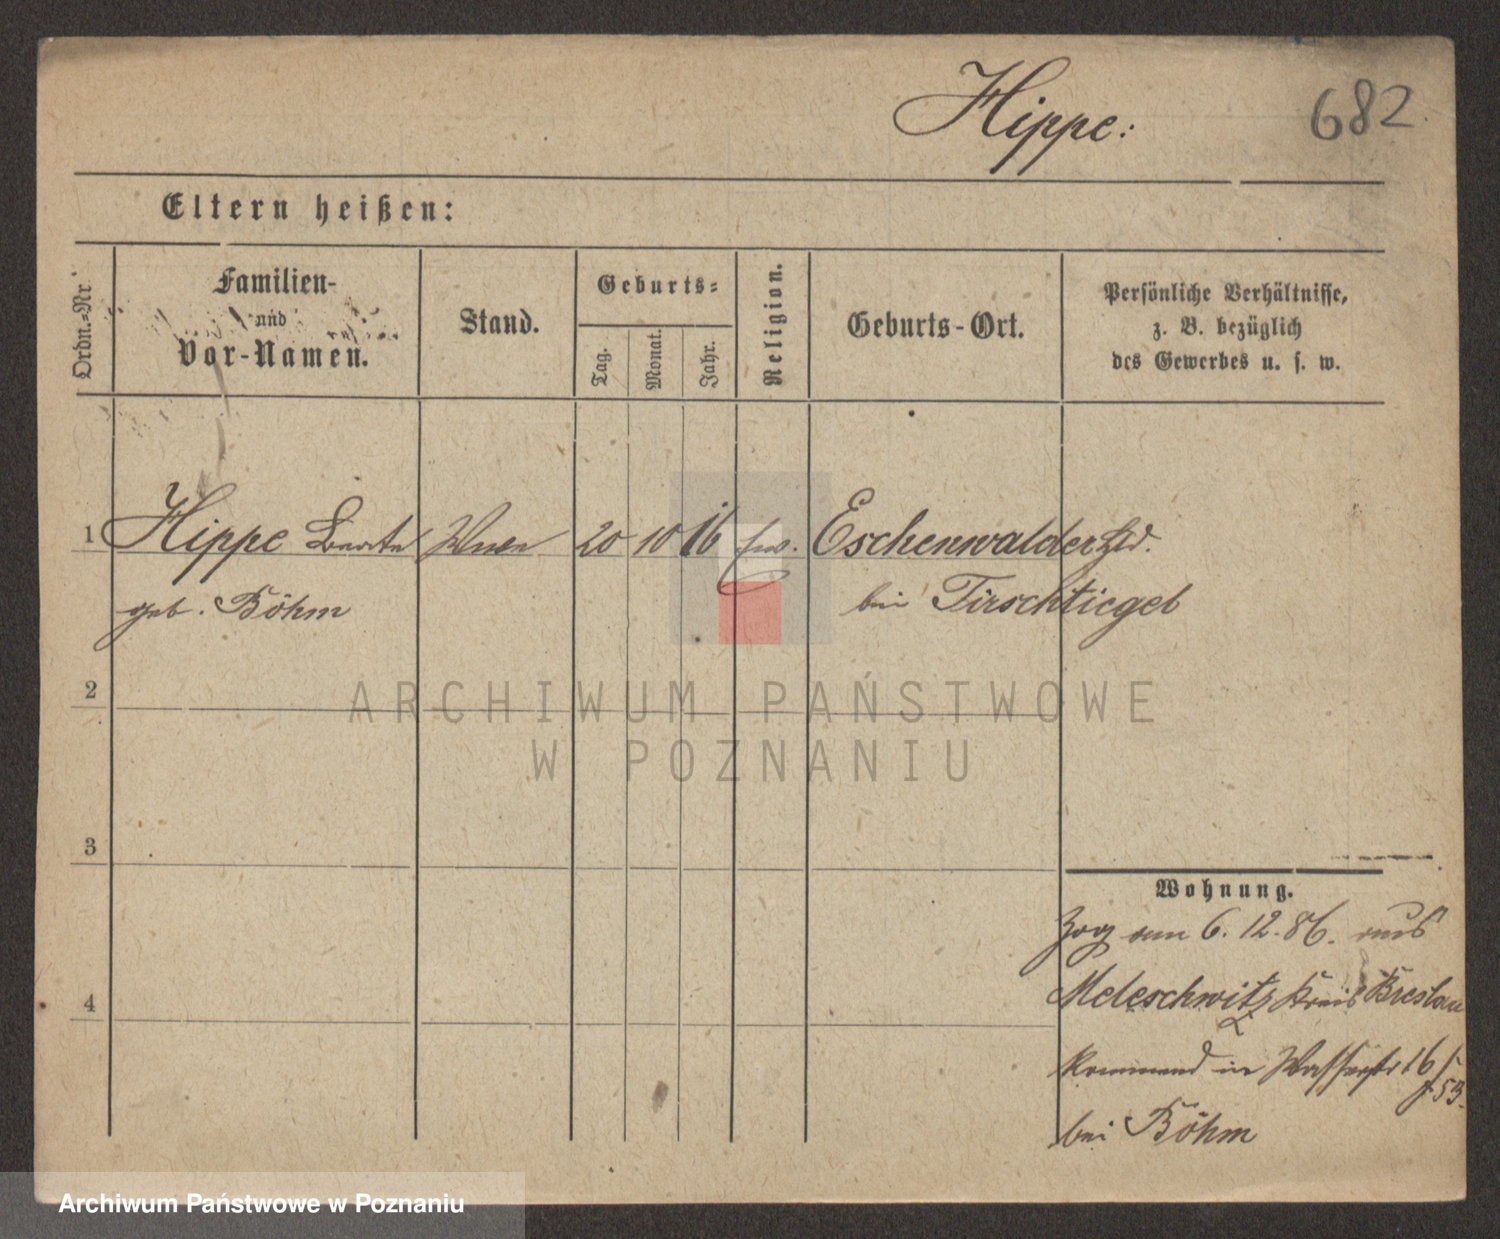 Hippe:
682.
Eltern heißen:
Ordn.-Nr
Familien-
und
Vor-Namen.
Stand.
Geburts-
Tag.
Monat.
Jahr.
Religion.
Geburts-Ort.
Persönliche Verhältnisse,
z. B. bezüglich
des Gewerbes u. s. w.
1 Hippe 20 10 16 Eschenwalder
geb. Böhm bei Tirschtiegel
2
ARCHIWUM PAŃSTWOWE
W POZNANIU
3
Wohnung.
Zog am 6.12.86. aus
Meleschwitz Kreis Breslau
4
kommend in Wasserstr 16
53.
bei Böhm
Archiwum Państwowe w Poznaniu